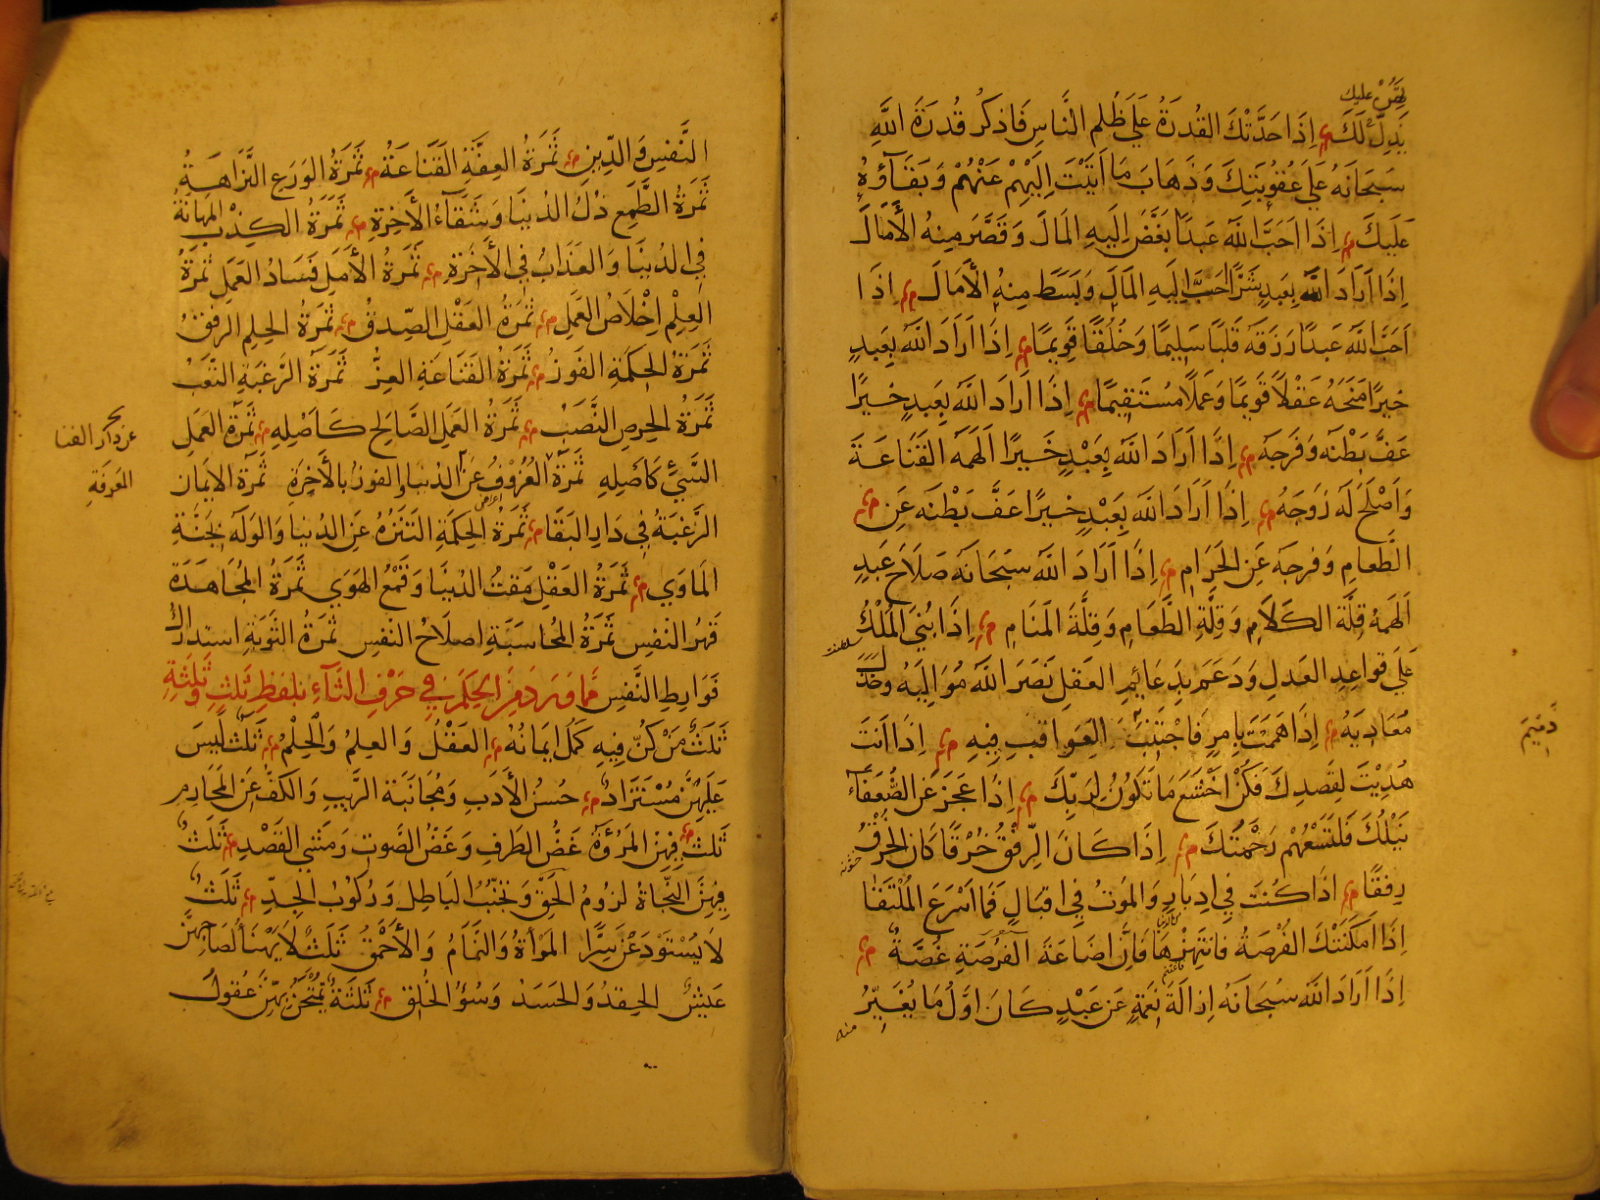 يَضُرُّ عليك
يَدِلُّ لَكَ إِذَا حَدَّثَتْكَ القُدرَةُ عَلَى ظُلمِ النَّاسِ فَاذكُر قُدرَةَ اللَّهِ
سُبحَانَهُ عَلَى عُقُوبَتِكَ وَذَهَابَ مَا اَتَيْتَ اِلَيْهِمْ عَنْهُمْ وَبَقَآؤُهُ
عَلَيكَ إِذَا اَحَبَّ اللَّهُ عَبدًا بَغَّضَ اِلَيهِ المَالَ وَقَصَّرَ مِنهُ الأَمَالَ
إِذَا اَرَادَ اللَّهُ بِعَبدٍ شَرًّا حَبَّبَ اِلَيهِ المَالَ وَبَسَطَ مِنهُ الأَمَالَ اِذَا
اَحَبَّ اللَّهُ عَبدًا رَزَقَهُ قَلبًا سَلِيمًا وَخُلُقًا قَوِيمًا اِذَا اَرَادَ اللَّهُ بِعَبدٍ
خيرًا مَنَحَهُ عَقْلًا قَوِيمًا وَعَمَلًا مُستَقِيمًا اِذَا اَرَادَ اللَّهُ بِعَبدٍ خَيرًا
عَفَّ بَطْنَهُ وَفَرجَهُ اِذَا اَرَادَ اللَّهُ بِعَبْدٍ خَيرًا اَلهَمَهُ القَنَاعَةَ
وَاَصْلَحَ لَهُ زَوجَهُ اِذَا اَرَادَ اللَّهُ بِعَبْدٍ خيرًا عَفَّ بَطْنَهُ عَنِ
الطَّعَامِ وَفَرجَهُ عَنِ الحَرَامِ اِذَا اَرَادَ اللَّهُ سُبحَانَهُ صَلَاحَ عَبدٍ
اَلهَمَهُ قِلَّةَ الكَلَامِ وَقِلَّةِ الطَّعَامِ وَقِلَّةَ المَنَامِ اِذَا بُنِيَ المُلْكُ
سلطنت
عَلَى قَوَاعِدِ العَدلِ وَدَعَمَ بِدَعَائِمِ العَقلِ نَصَرَ اللَّهُ مُوَالِيَهُ وخذل
مُعَادِيَهُ اِذَا هَمَمتَ بِامرٍ فَاجْتَنِبْ العَوَاقب فِيهِ اِذَا اَنتَ
هُدِيْتَ لِقَصدِكَ فَكُنْ اَخْشَعَ مَا تَكُونُ لِرَبِّكَ اِذَا عَجَزَ عَنِ الضُّعَفَآءِ
نَيْلُكَ فَلتَسَعْهُمْ رَحْمَتُكَ اِذَا كَانَ الرِّفْقُ خُرْقًا كَانَ الخُرْقُ
رِفقًا اِذَا كُنتَ فِي اِدبَارٍ وَالمَوتُ فِي اقبَالٍ فَمَا اَسْرَعَ المُلْتَقَا
اِذَا اَمكَنَتْكَ الفُرْصَةُ فانتَهِزْهَا فَاِنَّ اضَاعَةَ الفُرْصَةِ غُصَّةٌ
اِذَا اَرَادَ اللَّهُ سُبحَانَهُ اِزَالَةَ نِعمَةٍ عَن عَبْدٍ كَانَ اَوَّلُ مَا يُغَيِّرُ
منه
النَّفسِ وَالدِّينِ ثَمَرَةُ العِفَّةِ القَنَاعَةُ ثَمَرَةُ الوَرَعِ النَّزَاهَةُ
ثَمَرَةُ الطَّمَعِ ذُلُّ الدُنيَا وَشَقَآءُ الأَخِرَةِ ثَمَرَةُ الكِذْبِ المَهَانَةُ
فِي الدُنيَا وَالعَذَابُ فِي الأَخِرَةِ ثَمَرَةُ الأَمَلِ فَسَادُ العَمَلِ ثَمَرَةُ
العِلمِ اِخْلَاصُ العَمَلِ ثَمَرَةُ العَقْلِ الصِّدقُ ثَمَرَةُ الحِلمِ الرِّفقُ
ثَمَرَةُ الحِكمَةِ الفَوزُ ثَمَرَةُ القَنَاعَةِ العِزُّ ثَمَرَةُ الرَّغبَةِ التَّعَبُ
ثَمَرَةُ الحِرصِ النَّصَبُ ثَمَرَةُ العَمَلِ الصَّالِحِ كَاَصْلِهِ ثَمَرَةُ العَمَلِ
السَّيِّئِ كَاَصلِهِ ثَمَرَةُ العُزُوفُ عَنِ الدُنيا والفوزُ بالأَخِرَةِ ثَمَرَةُ الايمَانِ
عن دار الفنا
المَعرِفَةِ
الرَّغبَةُ فِي دَارِ البَقَا ثَمَرَةُ الحِكمَةِ التَنَزُّهُ عَنِ الدُنيا وَالوَلَهُ بِجَنَّةِ
المَاوَي ثَمَرَةُ العَقْلِ مَقتُ الدُنيَا وَقَمْعُ الهَوَي ثَمَرَةُ المُجَاهَدَةِ
قَهرُ النَّفسِ ثَمَرَةُ المُحَاسَبَةِ اصلَاحُ النَّفسِ ثَمَرَةُ التَّوبَةِ استِدراكُ
فَوَارِطِ النَّفسِ مما ورد من الحِكَمِ في حَرفِ الثَّآءِ بلفظِ ثَلَثٍ وثَلثَةٍ
ثَلَثٌ مَن كُنَّ فِيهِ كَمُلَ ايمَانُهُ العَقْلُ وَالعِلمُ وَالحِلمُ ثَلَثٌ لَيسَ
عَلَيهِنَّ مُسْتَزَادٌ حُسنُ الأَدَبِ وَمُجَانَبَةُ الرَّيبِ وَالكَفُّ عَنِ المَحَارِمِ
ثَلَثٌ فِيهِنَّ المُرُوَّةُ غَضُّ الطَرفِ وَغَضُّ الصَّوتِ وَمَشي القَصْدِ ثَلَثٌ
فِيهِنَّ النَّجَاةُ لزُومُ الحَقِّ وَتَجَنُّبُ البَاطِلِ وَرُكُوبُ الجِدِّ ثَلَثٌ
لَا يُسْتَودَعْنَ سِرًّا المَرأةُ وَالنَّمَامُ وَالأَحْمَقُ ثَلَثٌ لَا يَهْنَأُ لِصَاحِبِهِنَّ
عَيشٌ الحِقدُ وَالحَسَدُ وَسُوءُ الخُلُقِ ثَلثَةٌ يُمتَحَنُ بِهِنَّ عُقُولُ